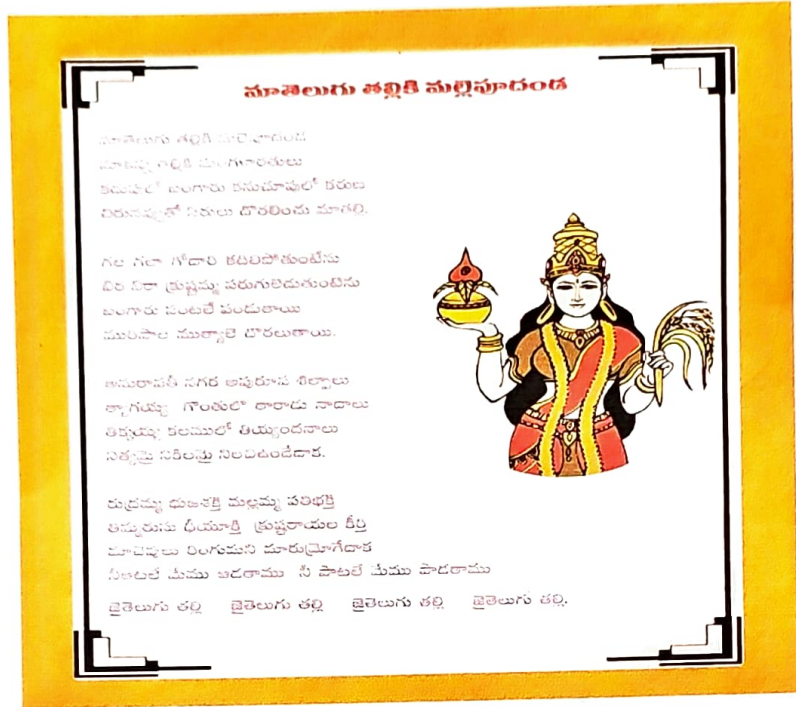 మాతెలుగు తల్లికి మల్లెపూదండ
మాతెలుగు తల్లికి మల్లెపూదండ
మాకన్న తల్లికి మంగళారతులు
కడుపులో బంగారు కనుచూపులో కరుణ
చిరునవ్వుతో సిరులు దొరలించు మాతల్లి.
గల గలా గోదారి కదలిపోతుంటేను
బిర బిరా క్రుష్ణమ్మ పరుగులెడుతుంటేను
బంగారు పంటలే పండుతాయి
మురిపాల ముత్యాలె దొరలుతాయి.
అమరావతీ నగర అపురూప శిల్పాలు
త్యాగయ్య గొంతులో తారాడు నాదాలు
తిక్కయ్య కలములో తియ్యందనాలు
నిత్యమై నికిలమై నిలచివుండేదాక.
రుద్రమ్మ భుజశక్తి మల్లమ్మ పతిభక్తి
తిమ్మరుసు ధీయుక్తి క్రుష్ణరాయల కీర్తి
మాచెవులు రింగుమని మారుమ్రోగేదాక
నీఆటలే మేము ఆడతాము నీ పాటలే మేము పాడతాము
జైతెలుగు తల్లి జైతెలుగు తల్లి జైతెలుగు తల్లి జైతెలుగు తల్లి.